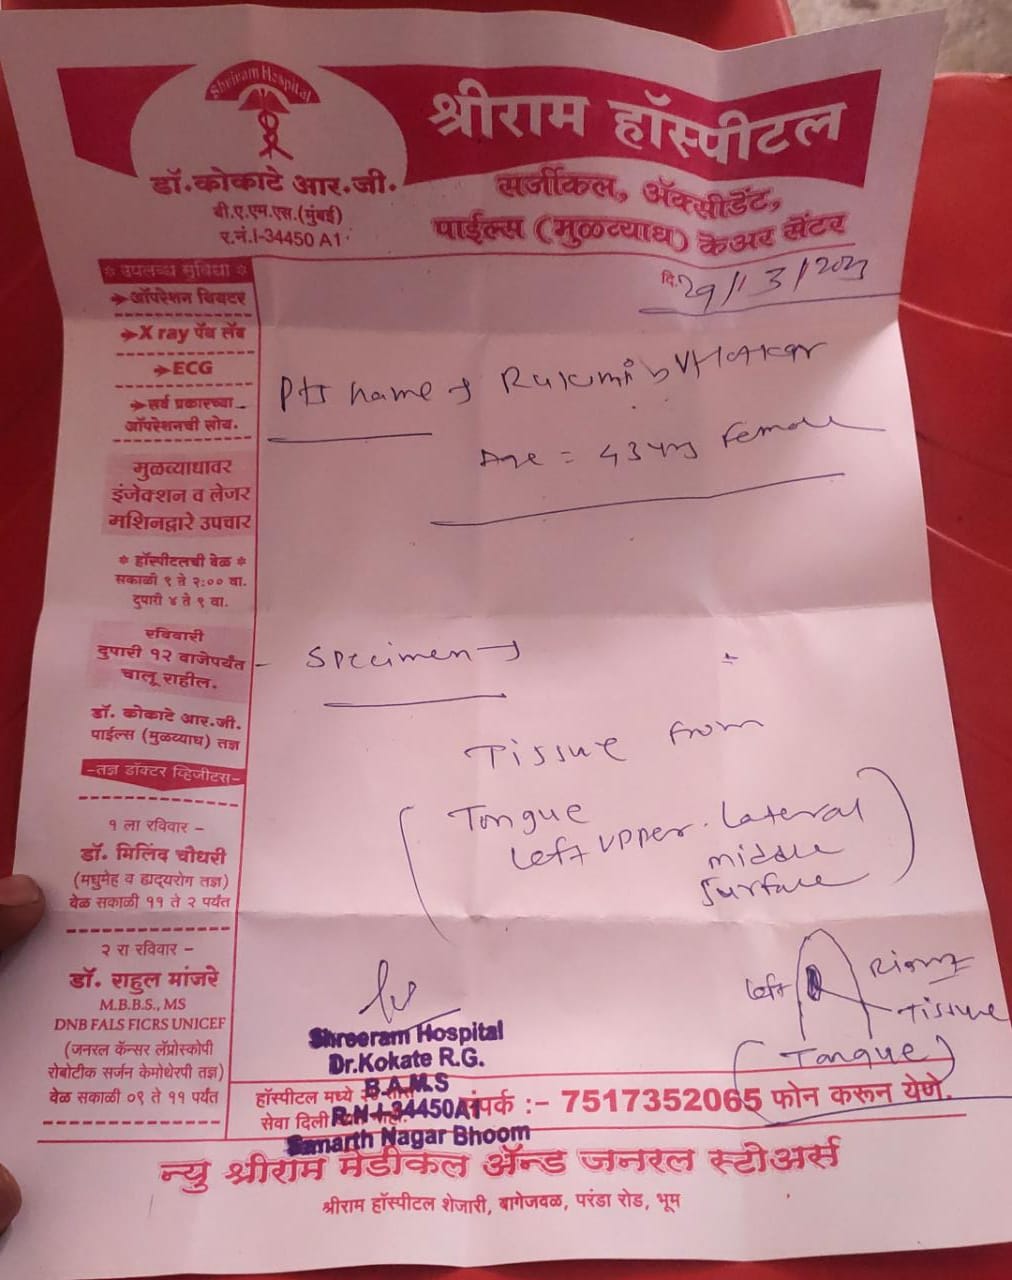 Shriram Hospital
श्रीराम हॉस्पीटल
डॉ.कोकाटे आर.जी.
बी.ए.एम.एस.(मुंबई)
ए.नं.I-34450 A1
सर्जीकल, ॲक्सीडेंट,
पाईल्स (मुळव्याध) केअर सेंटर
दि.29/3/202
* उपलब्ध सुविधा *
→ऑपरेशन थिएटर
→X ray पॅथ लॅब
→ECG
→सर्व प्रकारच्या
ऑपरेशनची सोय.
मुळव्याधावर
इंजेक्शन व लेजर
मशिनद्वारे उपचार
* हॉस्पीटलची वेळ *
सकाळी ९ ते २:०० वा.
दुपारी ४ ते ९ वा.
रविवारी
दुपारी १२ वाजेपर्यंत
चालू राहील.
डॉ. कोकाटे आर.जी.
पाईल्स (मुळव्याध) तज्ञ
-तज्ञ डॉक्टर व्हिजीटस-
१ ला रविवार -
डॉ. मिलिंद चौधरी
(मधुमेह व हृदयरोग तज्ञ)
वेळ सकाळी ११ ते २ पर्यंत
२ रा रविवार -
डॉ. राहुल मांजरे
M.B.B.S., MS
DNB FALS FICRS UNICEF
(जनरल कॅन्सर लॅप्रोस्कोपी
रोबोटीक सर्जन केमोथेरपी तज्ञ)
वेळ सकाळी ०९ ते ११ पर्यंत
name → 
Age = 43 yrs Female
Specimen →
Tissue from
(Tongue
Left Upper. Lateral
middle
surface)
Left Right
Tissue
(Tongue)
Shreeram Hospital
Dr.Kokate R.G.
B.A.M.S
R.N-I-34450A1
Samarth Nagar Bhoom
हॉस्पीटल मध्ये
सेवा दिली
संपर्क :- 7517352065 फोन करून येणे.
न्यु श्रीराम मेडीकल ॲन्ड जनरल स्टोअर्स
श्रीराम हॉस्पीटल शेजारी, बागेजवळ, परंडा रोड, भूम